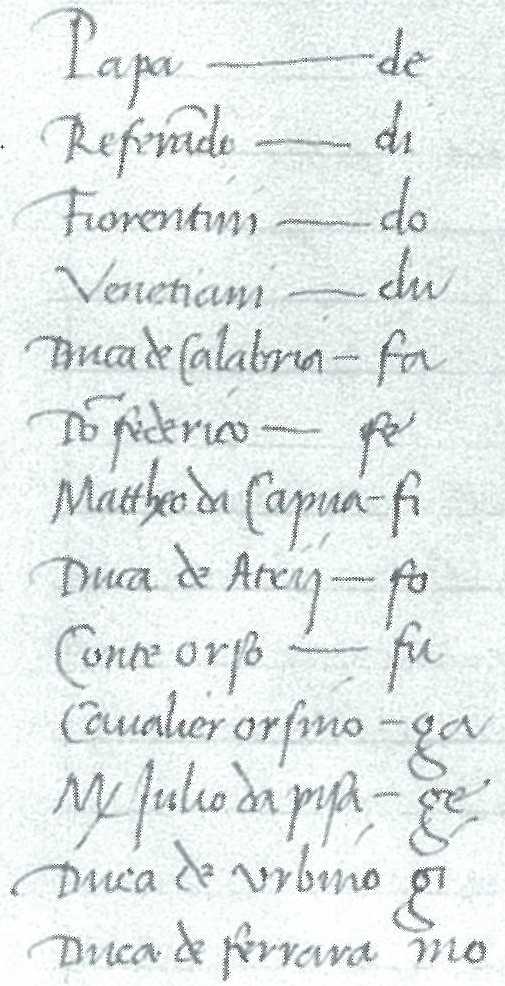 Papa — de
Referẽdo — di
Fiorentini — do
Venetiani — du
Duca de Calabria — fa
Dõ federico — fe
Mattheo da Capua — fi
Duca de Atrij — fo
Conte orso — fu
Cavalier orsino — ga
My Julio da pisa — ge
Duca de urbino gi
Duca de ferrara mo